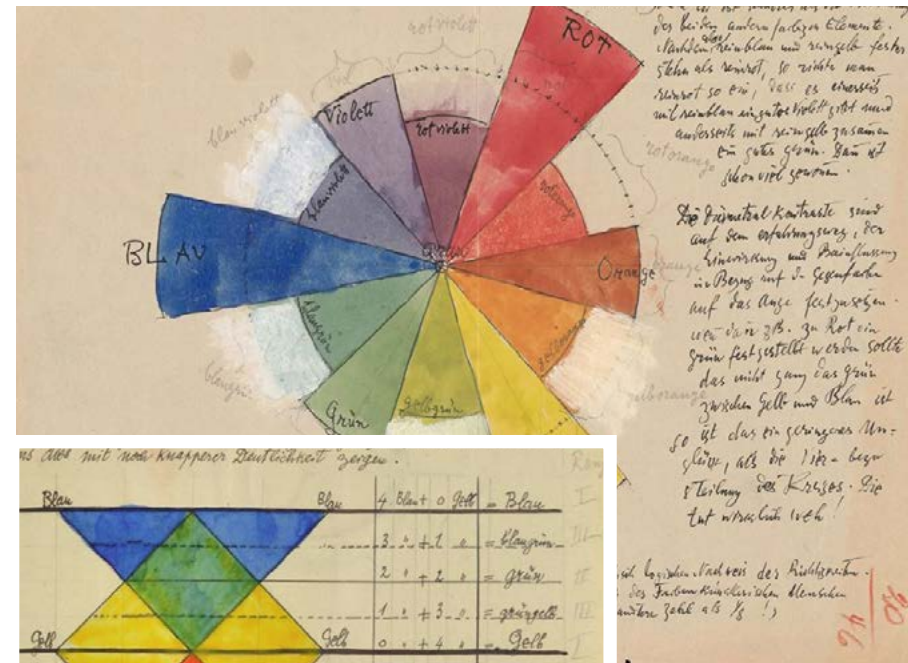 rotviolett
ROT
Violett
rotviolett
blauviolett
blauviolett
rotorange
rotorange
BLAU
Grau
Orange
orange
blaugrün
blaugrün
Grün
gelbgrün
gelborange
gelborange
der beiden andern farbigen Elemente.
Nachdem aber reinblau und reingelb fester
stehn als reinrot, so richte man
reinrot so ein, dass es einerseits
mit reinblau ein gutes Violett gibt und
anderseits mit reingelb zusammen
ein gutes
schon viel gewonnen.
Die Diametral Kontraste sind
auf dem erfahrungsweg, der
Einwirkung und Beinflussung
in Bezug auf d. Gegenfarbe
auf das Auge festzusetzen.
wenn dann zB. zu Rot ein
grün festgestellt werden sollte
das nicht ganz das grün
zwischen Gelb und Blau ist
so ist das ein geringeres Un=
glück, als die
Teilung des Kreises. Die
tut wirklich weh!
logischen Nachweis des
des Farben Künstlerischen Menschen
andere Zahl als 1/6 !)
alles mit noch knapperer Deutlichkeit zeigen.
Blau Blau 4 Blau + 0 Gelb = Blau I
3 " + 1 " = blaugrün
2 " + 2 " = grün II
1 " + 3 " = grüngelb III
Gelb Gelb 0 " + 4 " = Gelb I